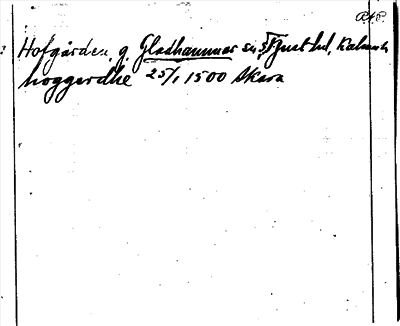 Hofgården, g. Gladhammar sn, S Tjust hd, Kalmar l.
hoggerdhe 25/1 1500 Skara